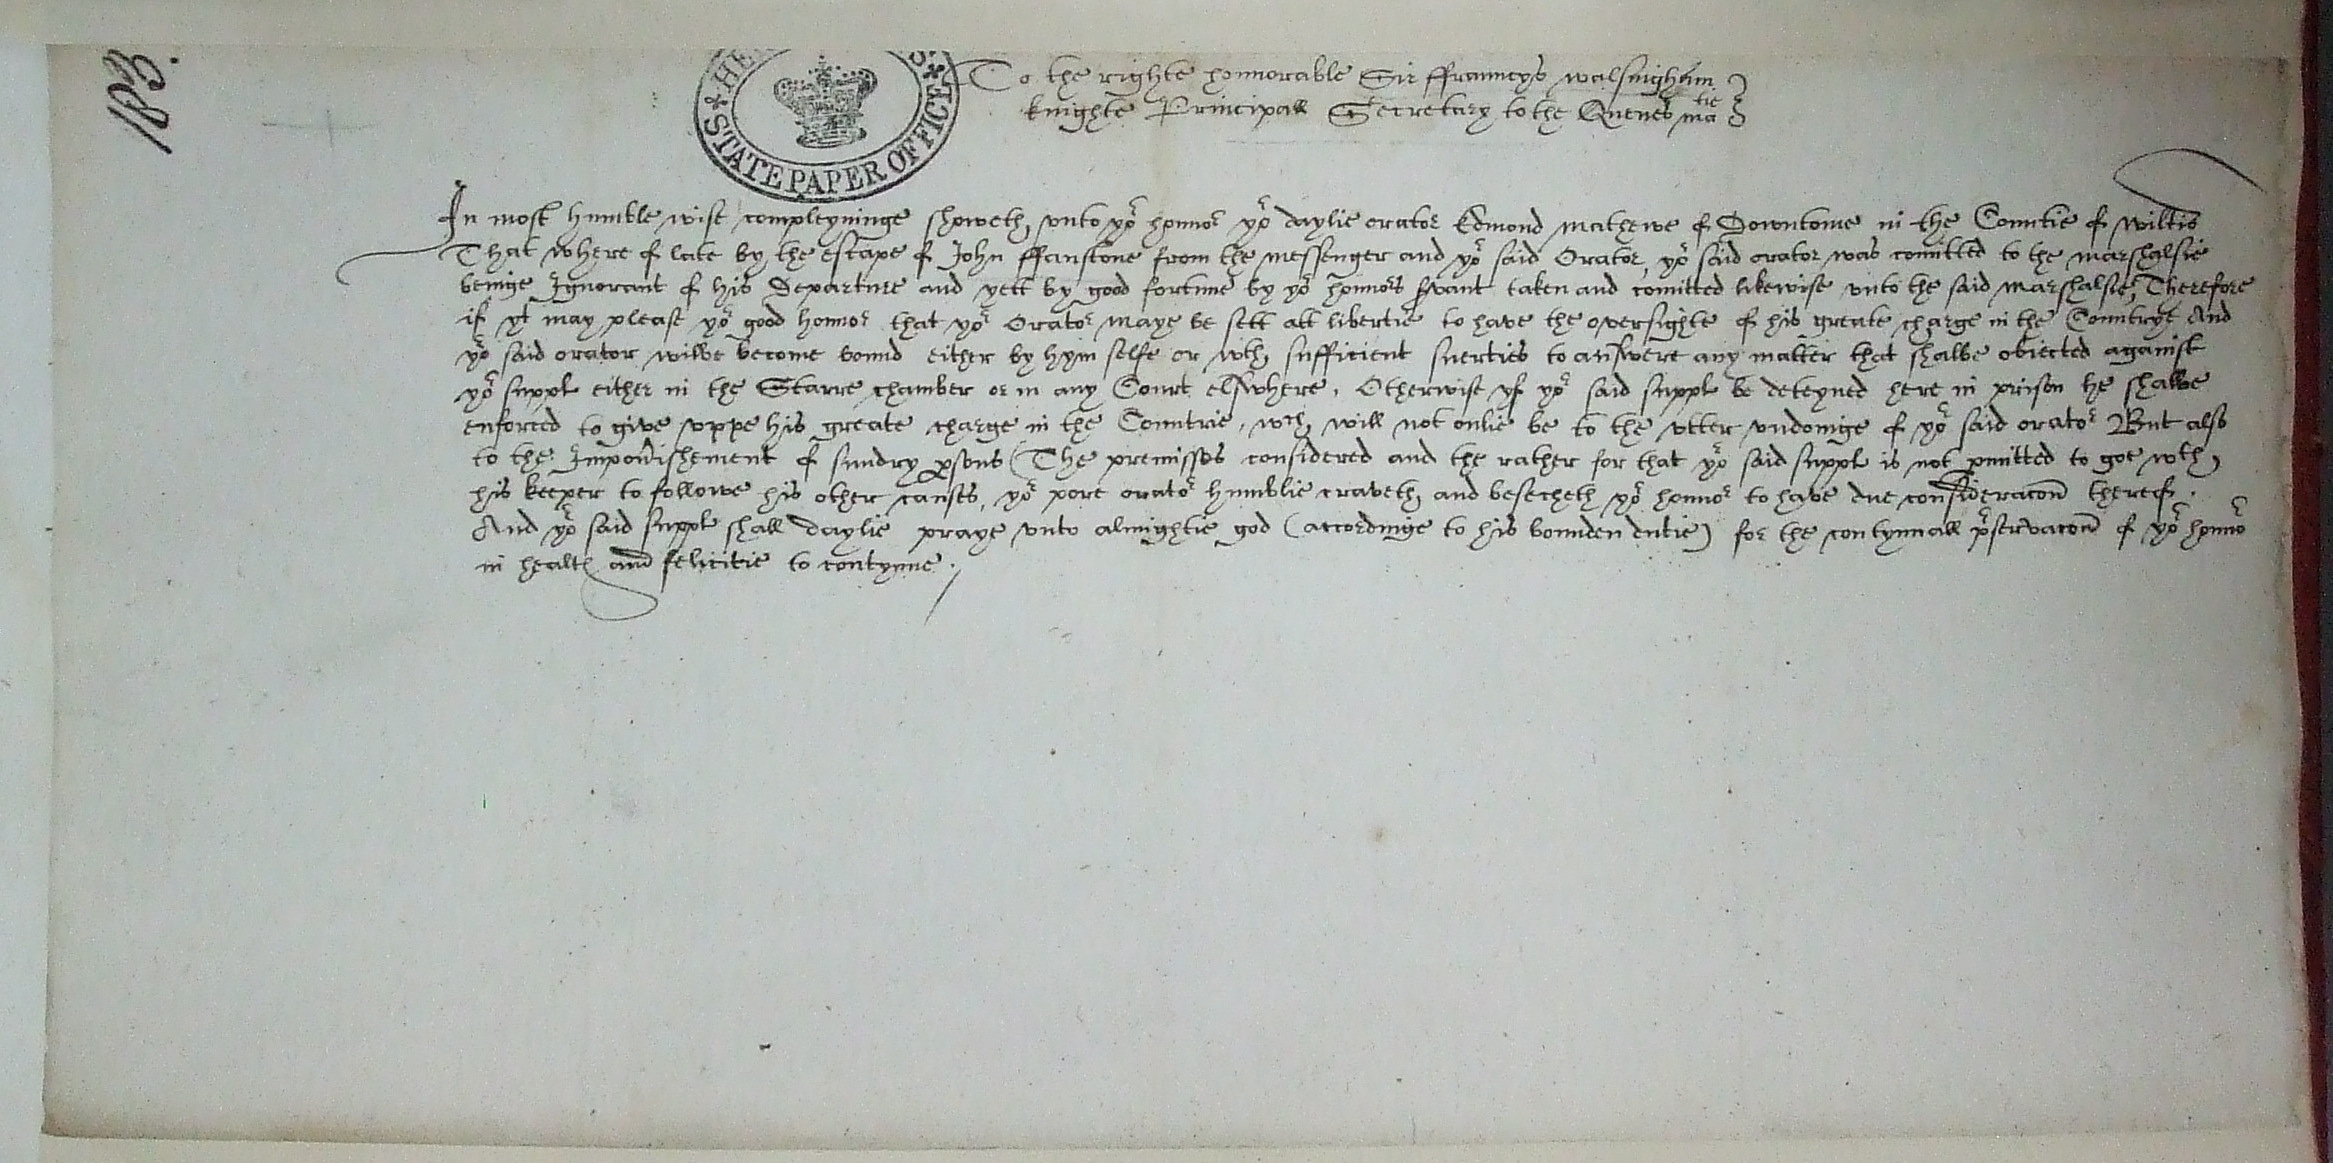 HE
STATE PAPER OFFICE
To the righte honnorable Sir ffraunceys walsingham
knighte Principall Secretary to the Quenes matie
In most humble wise compleyninge showeth unto yor honnor yor daylie orator Edmond Mathewe of Downtone in the Countie of wiltes
That where of late by the escape of John ffanstone from the messenger and yor said Orator, yor said orator was comitted to the marshalsie
beinge Ignorant of his Departure and yett by good fortune by yor honnors servant taken and comitted likewise unto the said marshalsie, Therefore
if yt may please yor good honnor that yor Orator maye be sett att libertie to have the oversighte of his greate charge in the Countrye And
yor said orator wilbe become bound either by hym selfe or wth sufficient suerties to answere any matter that shalbe obiected against
yor suppl either in the Starre chamber or in any Court elswhere. Otherwise yf yor said suppl be deteyned here in prison he shalbe
enforced to give uppe his greate charge in the Countrie, wch will not onlie be to the utter undoinge of yor said orator But also
to the Impoverishement of sundry persons (The premisses considered and the rather for that yor said suppl is not pmitted to goe wth
his keeper to followe his other causes, yor pore orator humblie craveth and besecheth yor honnor to have due consideracon thereof.
And yor said suppl shall daylie praye unto almightie god (accordinge to his bounden dutie) for the contynuall preservacon of yor honnor
in health and felicitie to contynue.